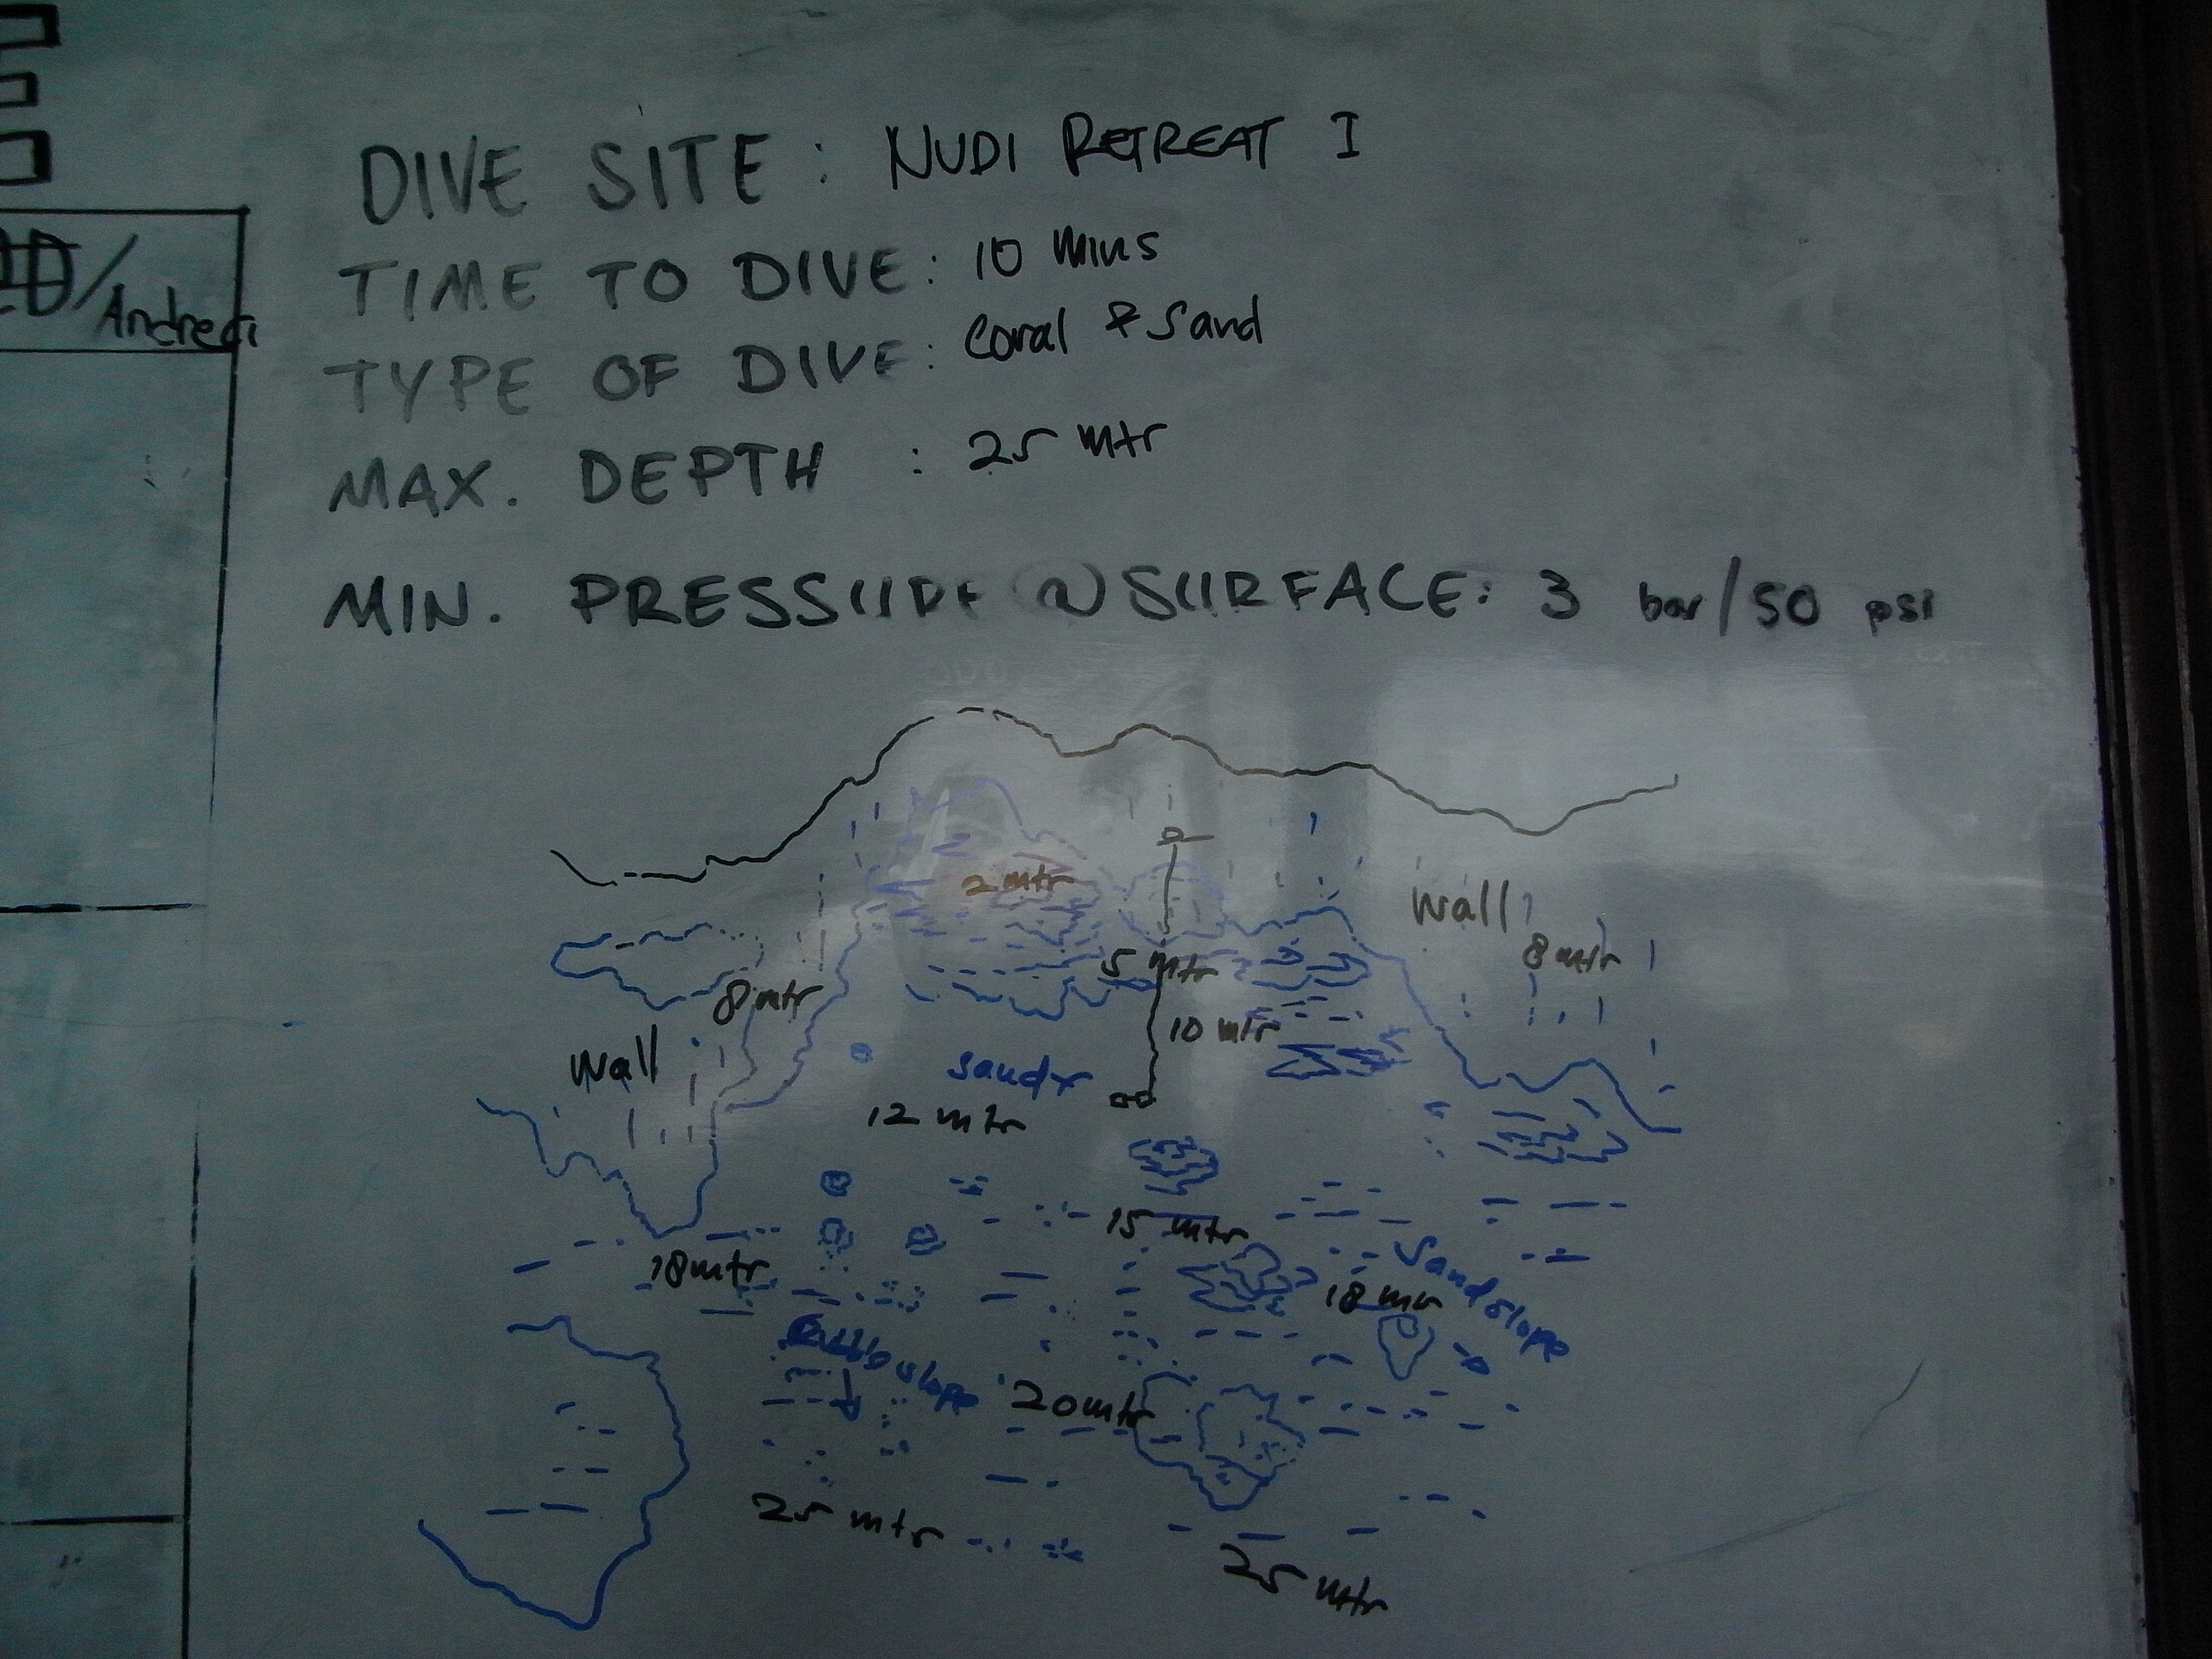 DIVE SITE: NUDI RETREAT I
TIME TO DIVE: 10 mins
TYPE OF DIVE: Coral & Sand
MAX. DEPTH : 25 mtr
MIN. PRESSURE @ SURFACE: 3 bar/50 psi
2 mtr
Wall
8 mtr
5 mtr
8 mtr
10 mtr
Wall
Sandy
12 mtr
15 mtr
18 mtr
Sand slope
18 mtr
Rubble slope
20 mtr
25 mtr
25 mtr